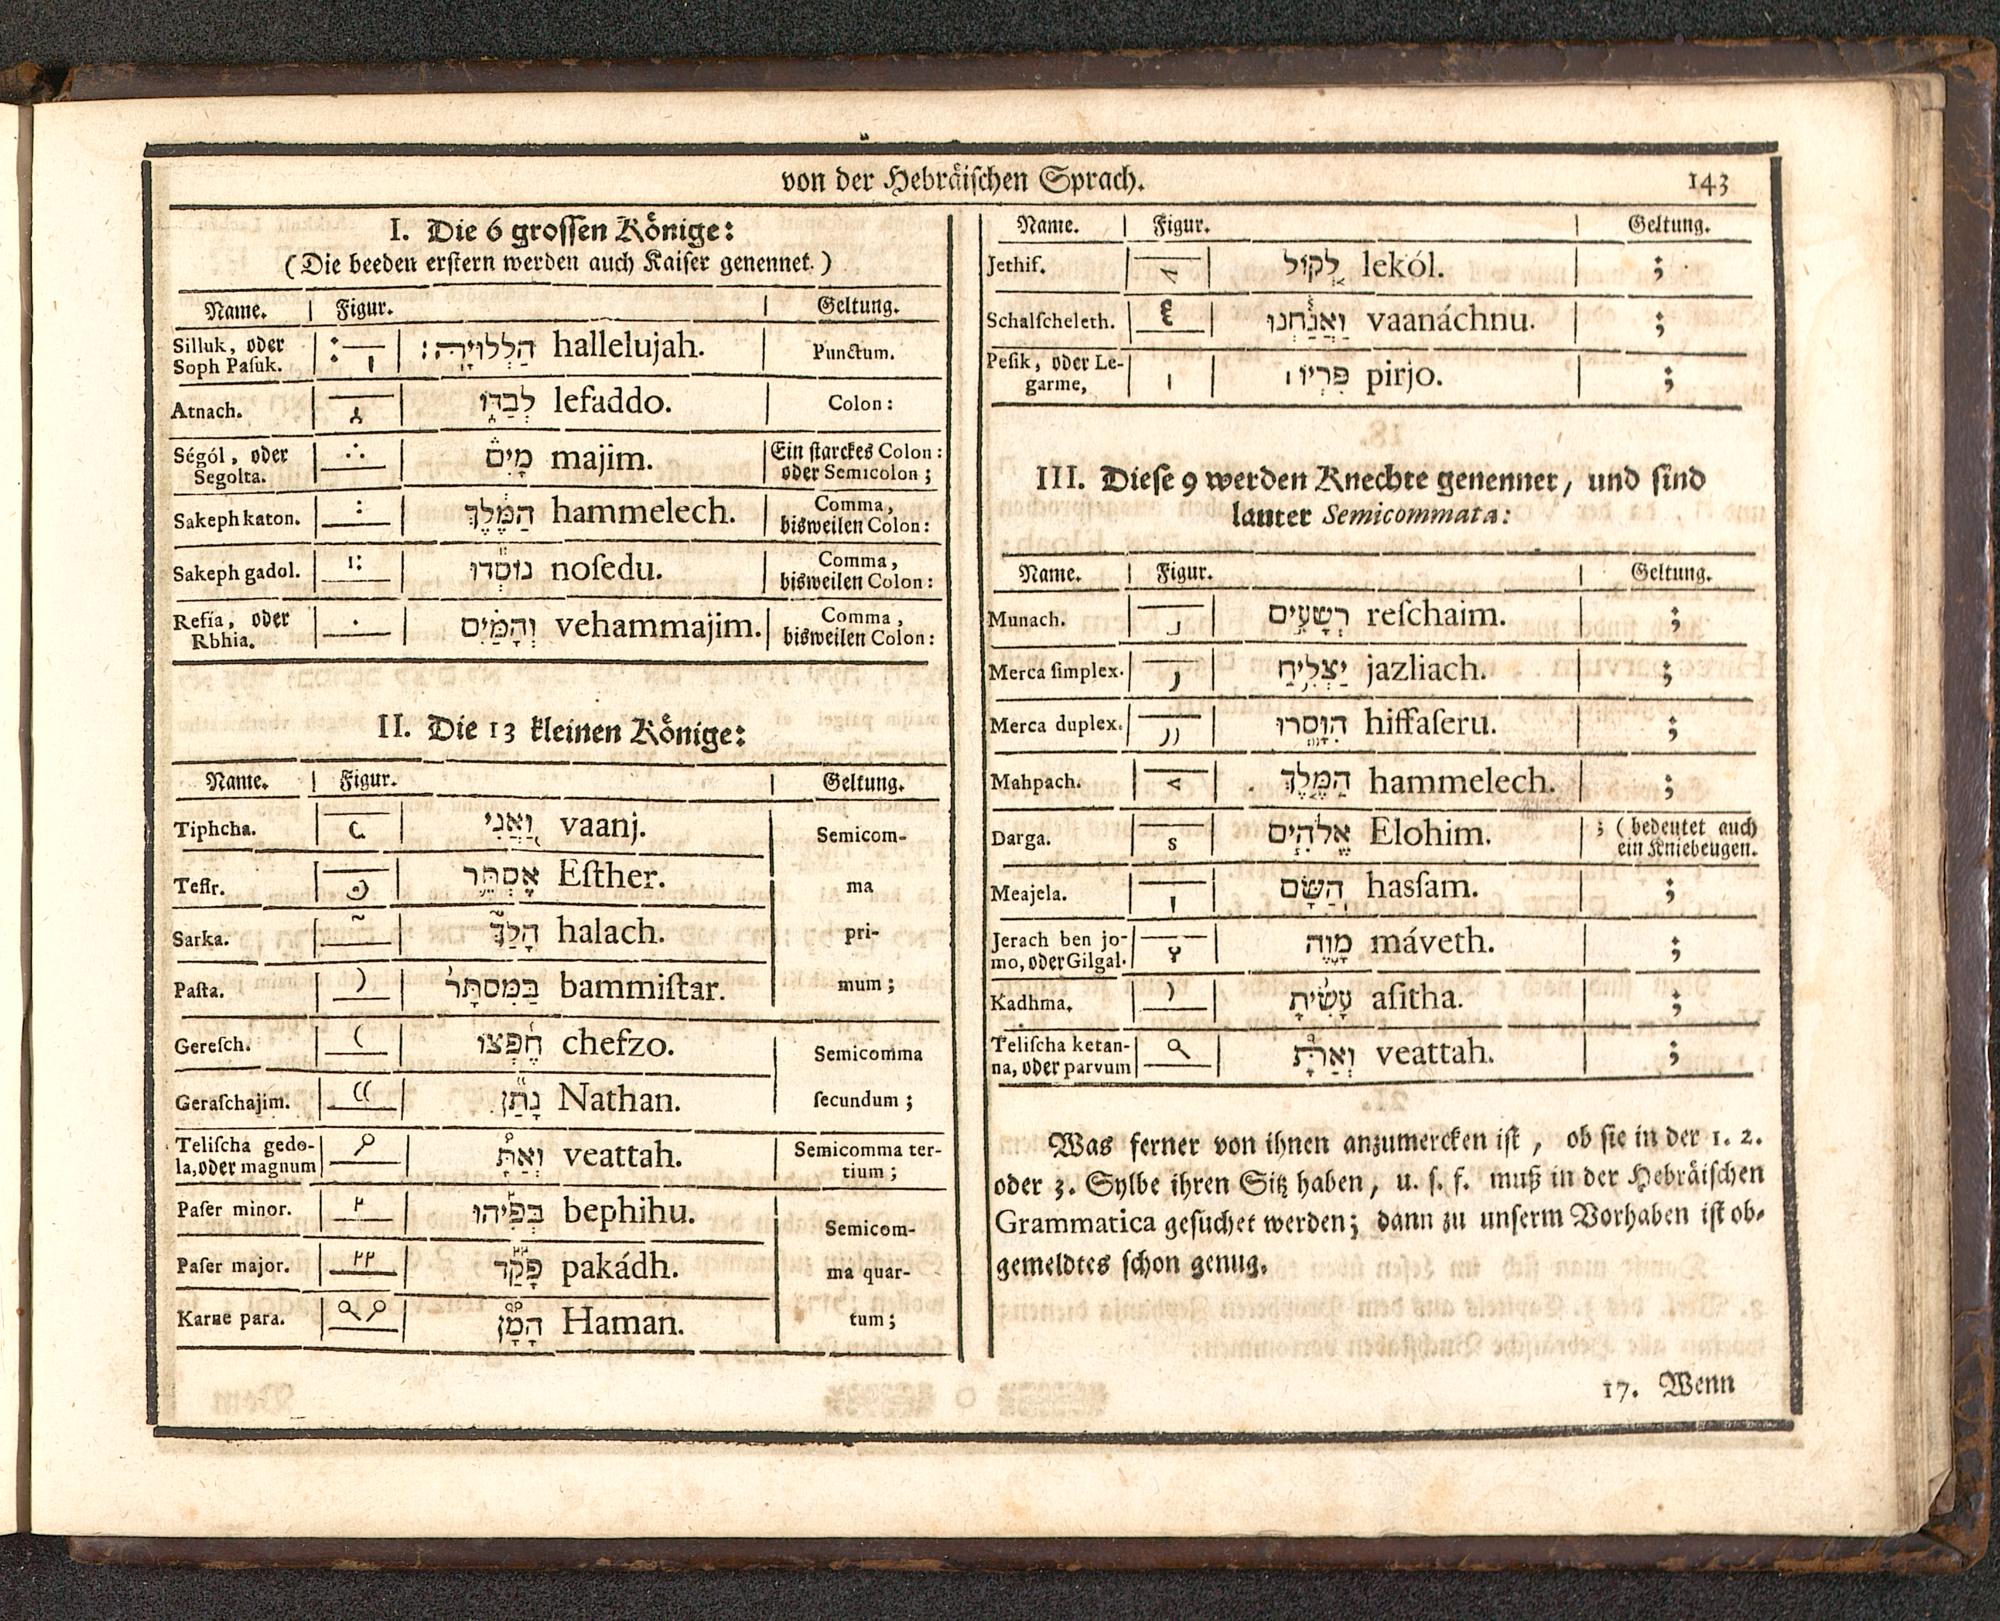 von der Hebräischen Sprach. 143
I. Die 6 grossen Könige:
(Die beeden erstern werden auch Kaiser genennet.)
Name. Figur. Geltung.
Silluk, oder
Soph Pasuk. hallelujah. Punctum.
Atnach. לְבַדּ֑וֹ lefaddo. Colon:
Ségól, oder
Segolta. מַיִם֒ majim. Ein starckes Colon:
oder Semicolon;
Sakeph katon. הַמֶּ֔לֶךְ hammelech. Comma,
bisweilen Colon:
Sakeph gadol. נוֹסְדוּ nosedu. Comma,
bisweilen Colon:
Refía, oder
Rbhia. וְהַמַּ֗יִם vehammajim. Comma,
bisweilen Colon:
II. Die 13 kleinen Könige:
Name. Figur. Geltung.
Tiphcha. וַאֲנִי vaanj. Semicom-
Tefir. אֶסְתֵּר Esther. ma
Sarka. הָלַךְ halach. pri-
Pasta. בַּמִּסְתָּר bammistar. mum;
Geresch. חֶפְצוֹ chefzo. Semicomma
Geraschajim. נָתַן Nathan. secundum;
Telischa gedo-
la, oder magnum וְאַתָּ veattah. Semicomma ter-
tium;
Paser minor. בְּפִיהוּ bephihu. Semicom-
Paser major. פָּקַד pakádh. ma quar-
Karne para. הָמָן Haman. tum;
Name. Figur. Geltung.
Jethif. לְקוֹל lekól. ;
Schalscheleth. וַאֲנַחְנוּ vaanáchnu. ;
Pesik, oder Le-
garme, פִּרְיוֹ ׀ pirjo. ;
III. Diese 9 werden Knechte genennet, und sind
lauter Semicommata:
Name. Figur. Geltung.
Munach. רְשָׁעִים reschaim. ;
Merca simplex. יַצְלִיחַ jazliach. ;
Merca duplex. הִוָּסְרוּ hiffaseru. ;
Mahpach. הַמֶּלֶךְ hammelech. ;
Darga. אֱלֹהִים Elohim. ; (bedeutet auch
ein Kniebeugen.
Meajela. הַשָּׂם hassam. ;
Jerach ben jo-
mo, oder Gilgal. máveth. ;
Kadhma. עָשִׂיתָ asitha. ;
Telischa ketan-
na, oder parvum וְאַתָּ veattah. ;
Was ferner von ihnen anzumercken ist, ob sie in der 1. 2.
oder 3. Sylbe ihren Sitz haben, u. s. f. muß in der Hebräischen
Grammatica gesuchet werden; dann zu unserm Vorhaben ist ob-
gemeldtes schon genug.
17. Wenn